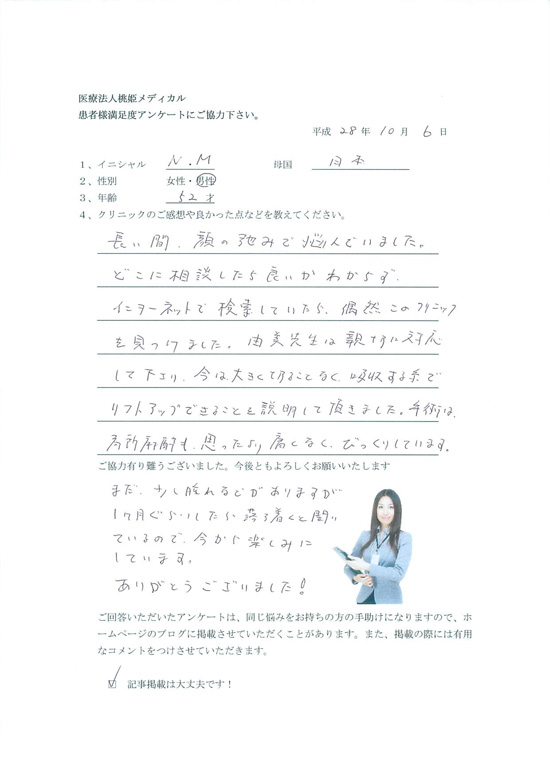 医療法人桃姫メディカル
患者様満足度アンケートにご協力下さい。
平成 28 年 10 月 6 日
1、イニシャル N.M 母国 日本
2、性別 女性・男性
3、年齢 52才
4、クリニックのご感想や良かった点などを教えてください。
長い間、顔の弛みで悩んでいました。
どこに相談したら良いかわからず、
インターネットで検索していたら、偶然このクリニック
を見つけました。由美先生は親切に対応
して下さり、今は大きく切ることなく、吸収する糸で
リフトアップできることを説明して頂きました。手術は、
局所麻酔も、思ったより痛くなく、びっくりしています。
ご協力有り難うございました。今後ともよろしくお願いいたします
まだ、少し腫れなどがありますが
1ヶ月ぐらいしたら落ち着くと聞い
ているので、今から楽しみに
しています。
ありがとうございました!
ご回答いただいたアンケートは、同じ悩みをお持ちの方の手助けになりますので、ホ
ームページのブログに掲載させていただくことがあります。また、掲載の際には有用
なコメントをつけさせていただきます。
☑ 記事掲載は大丈夫です!